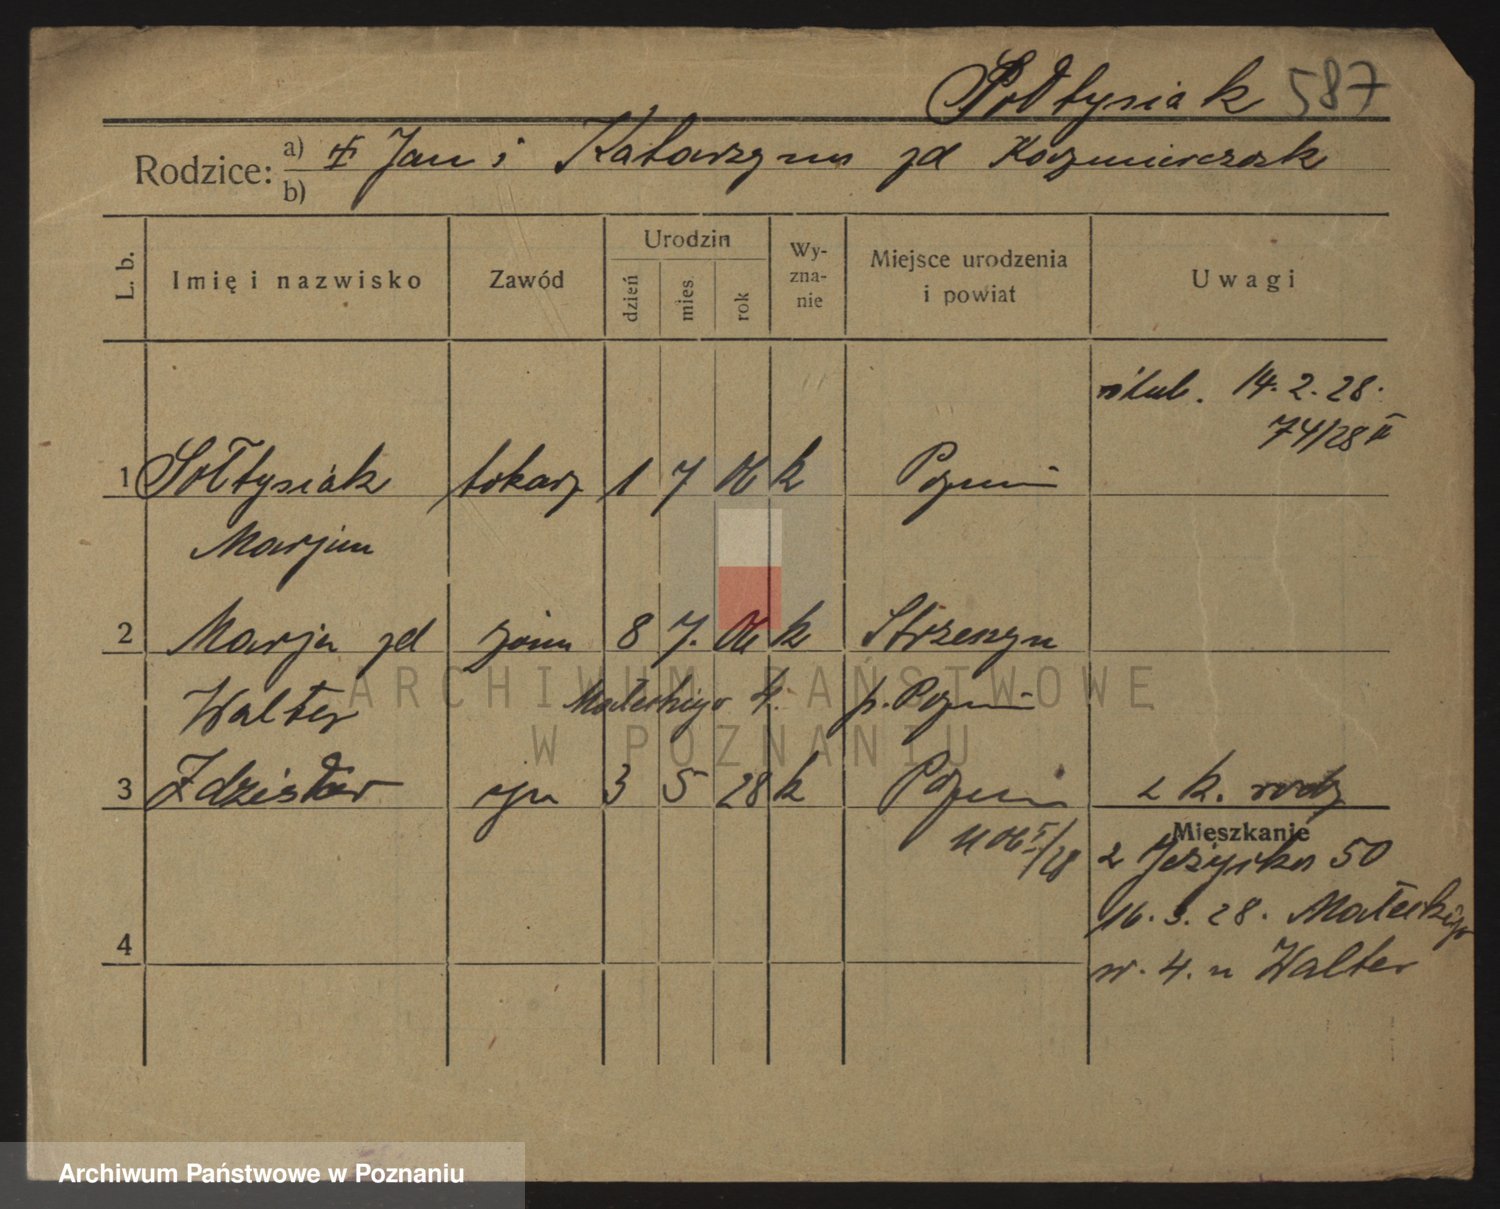 Sołtysiak 587
Rodzice: a) Jan i Katarzyna zd Kaźmierczak
b)
L. b. Imię i nazwisko Zawód Urodzin dzień mies. rok Wy-zna-nie Miejsce urodzenia i powiat Uwagi
ślub. 14. 2. 28.
74/28 II
1 Sołtysiak tokarz 1 7 06 k Poznań
Marjan
2 Marja zd żona 8 7. 06 k Strzeszyn
Walter Małeckiego 4. p. Poznań
3 Zdzisław syn 3 5 28 k Poznań z k. rodz
Mieszkanie
1106 I/28 2 Jeżycka 50
16. 3. 28. Małeckiego
4
nr. 4. u Walter
ARCHIWUM PAŃSTWOWE
W POZNANIU
Archiwum Państwowe w Poznaniu